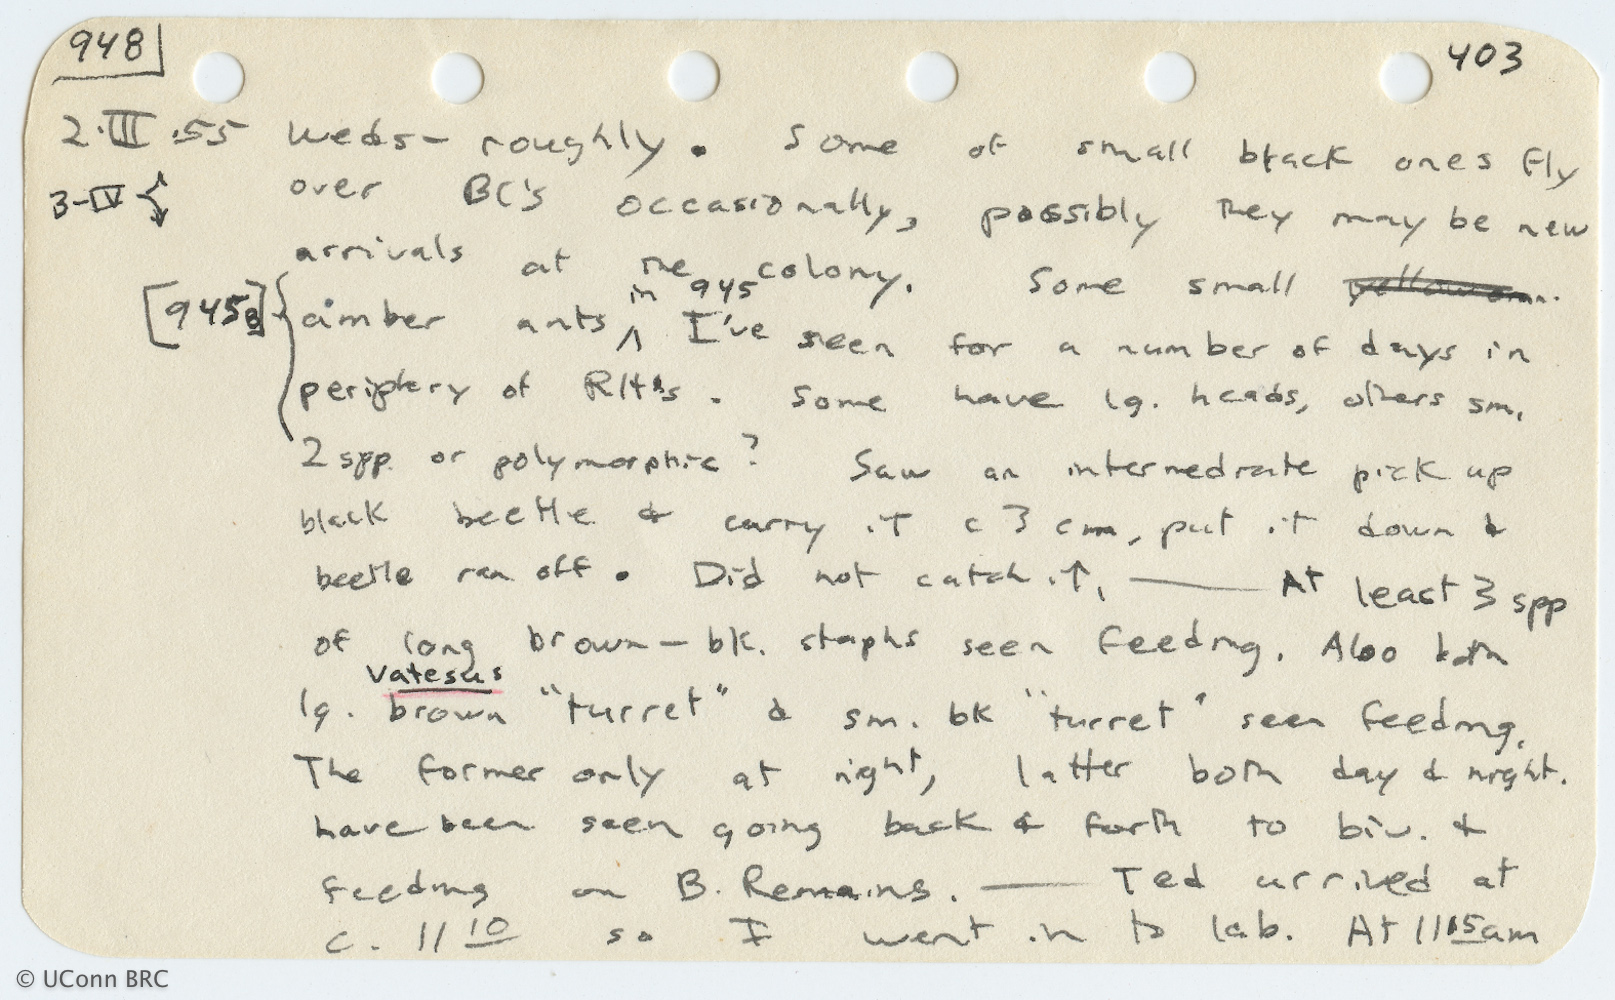 948
403
2·III·55 Weds- roughly. Some of small black ones fly
3-IV over BC's occasionally, possibly they may be new
arrivals at the colony. Some small
[945B] amber ants in 945 I've seen for a number of days in
periphery of RH's. Some have lg. heads, others sm.
2 spp. or polymorphic? Saw an intermediate pick up
black beetle & carry it c 3 cm, put it down &
beetle ran off. Did not catch it. — At least 3 spp
of long brown-bk. staphs seen feeding. Also both
Vatesus
lg. brown "turret" & sm. bk "turret" seen feeding.
The former only at night, latter both day & night.
have been seen going back & forth to biv. &
feeding on B. Remains. — Ted arrived at
c. 11 10 so I went in to lab. At 11 15 am
© UConn BRC